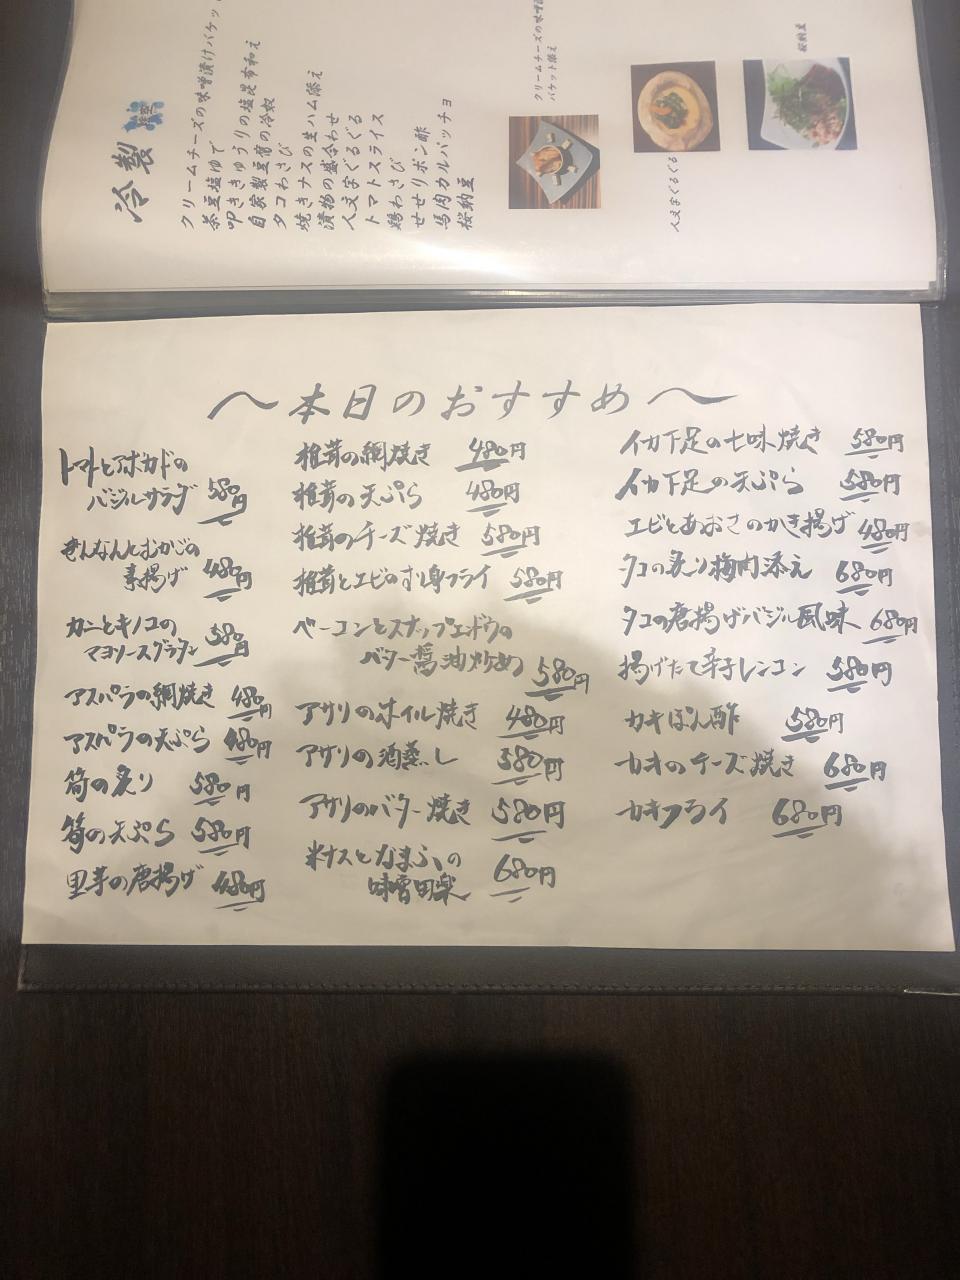 冷製
クリームチーズの味噌漬けバケット
茶豆塩ゆで
叩ききゅうりの塩昆布和え
自家製豆腐の冷奴
タコわさび
焼きナスの生ハム添え
漬物の盛合わせ
人文字ぐるぐる
トマトスライス
鶏わさび
せせりポン酢
馬肉カルパッチョ
桜納豆
クリームチーズの味噌漬
バケット添え
人文字ぐるぐる
桜納豆
〜本日のおすすめ〜
トマトとアボカドの
バジルサラダ 580円
ぎんなんとむかごの
素揚げ 480円
カニとキノコの
マヨソースグラタン 580円
アスパラの網焼き 480円
アスパラの天ぷら 480円
筍の炙り 580円
筍の天ぷら 580円
里芋の唐揚げ 480円
椎茸の網焼き 480円
椎茸の天ぷら 480円
椎茸のチーズ焼き 580円
椎茸とエビのすり身フライ 580円
ベーコンとスナップエンドウの
バター醤油炒め 580円
アサリのホイル焼き 480円
アサリの酒蒸し 580円
アサリのバター焼き 580円
米ナスとなまふの
味噌田楽 680円
イカ下足の七味焼き 580円
イカ下足の天ぷら 580円
エビとあおさのかき揚げ 480円
タコの炙り梅肉添え 680円
タコの唐揚げバジル風味 680円
揚げたて辛子レンコン 580円
カキぽん酢 580円
カキのチーズ焼き 680円
カキフライ 680円